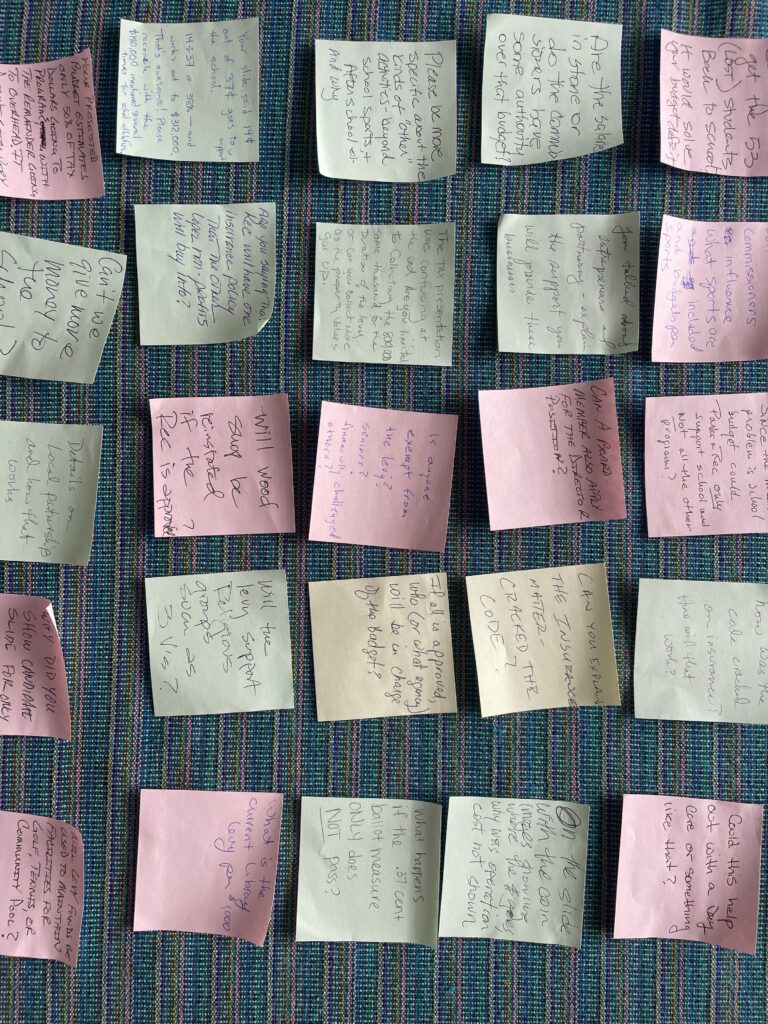 get the 53
(LOST) students
Back to school
It would solve
your budget deficit
Commissioners
influence
what sports are
included
and budgets per
sports
Since the
problem is school
budget could
Parks + Rec only
support school and
Not all the other
programs?
How was the
code cracked
on insurance?
How will that
work?
Could this help
out with a Day
care or something
like that?
Are the salaries
in stone or
do the commis-
sioners have
some authority
over that budget?
You talked about
entrepreneurs and
partnering - explain
the support you
will provide these
businesses
CAN A BOARD
MEMBER ALSO APPLY
FOR THE DIRECTOR
POSITION?
CAN YOU EXPLAIN
THE INSURANCE
MATTER.
CRACKED THE
CODE?
On the slide
with the coin
images showing
where the goes,
why was operation
cost not shown
Please be more
specific about the
kinds of "other"
activities beyond
school sports +
After school etc
And why
The tax presentation
was confusing at
the end. Are you limited
to collecting the 800,000
some thousand for the
duration of the levy
or can you collect more
as the property values
go up.
Is anyone
exempt from
the levy?
seniors?
financially challenged
others?
If all is approved,
who (or what agency)
will be in charge
of the budget?
What happens
if the .37 cent
ballot measure
ONLY does
NOT pass?
Your slide said 14¢
out of 37¢ goes to support
the school.
14 ÷ 37 is 38% and
works out to $312,000.
That's awesome! Please
reconcile with the
$150,000 mentioned several
times for school athletics
Are you saying that
Rec will have one
insurance policy
that the other
user non-profits
will buy into?
Will wood
shop be
reinstated
if the
Rec is approved?
Will the
levy support
Religious
groups
such as
3 V's?
What is the
current library
levy per 1000
YOUR PROJECTED
BUDGET ESTIMATES
ONLY 50% OF TAX
DOLLARS GOES TO
PROGRAM WITH
THE REMAINDER GOING
TO OVERHEAD. IT
Can't we
give more
money to
the
School?
Details on
Local partnership
and how that
works
WHY DID YOU
SHOW CANDIDATE
SLIDE FOR ONLY
WILL LEVY FUND BE
USED TO MAINTAIN
FACILITIES FOR
GOLF, TENNIS OR
COMMUNITY POOL?